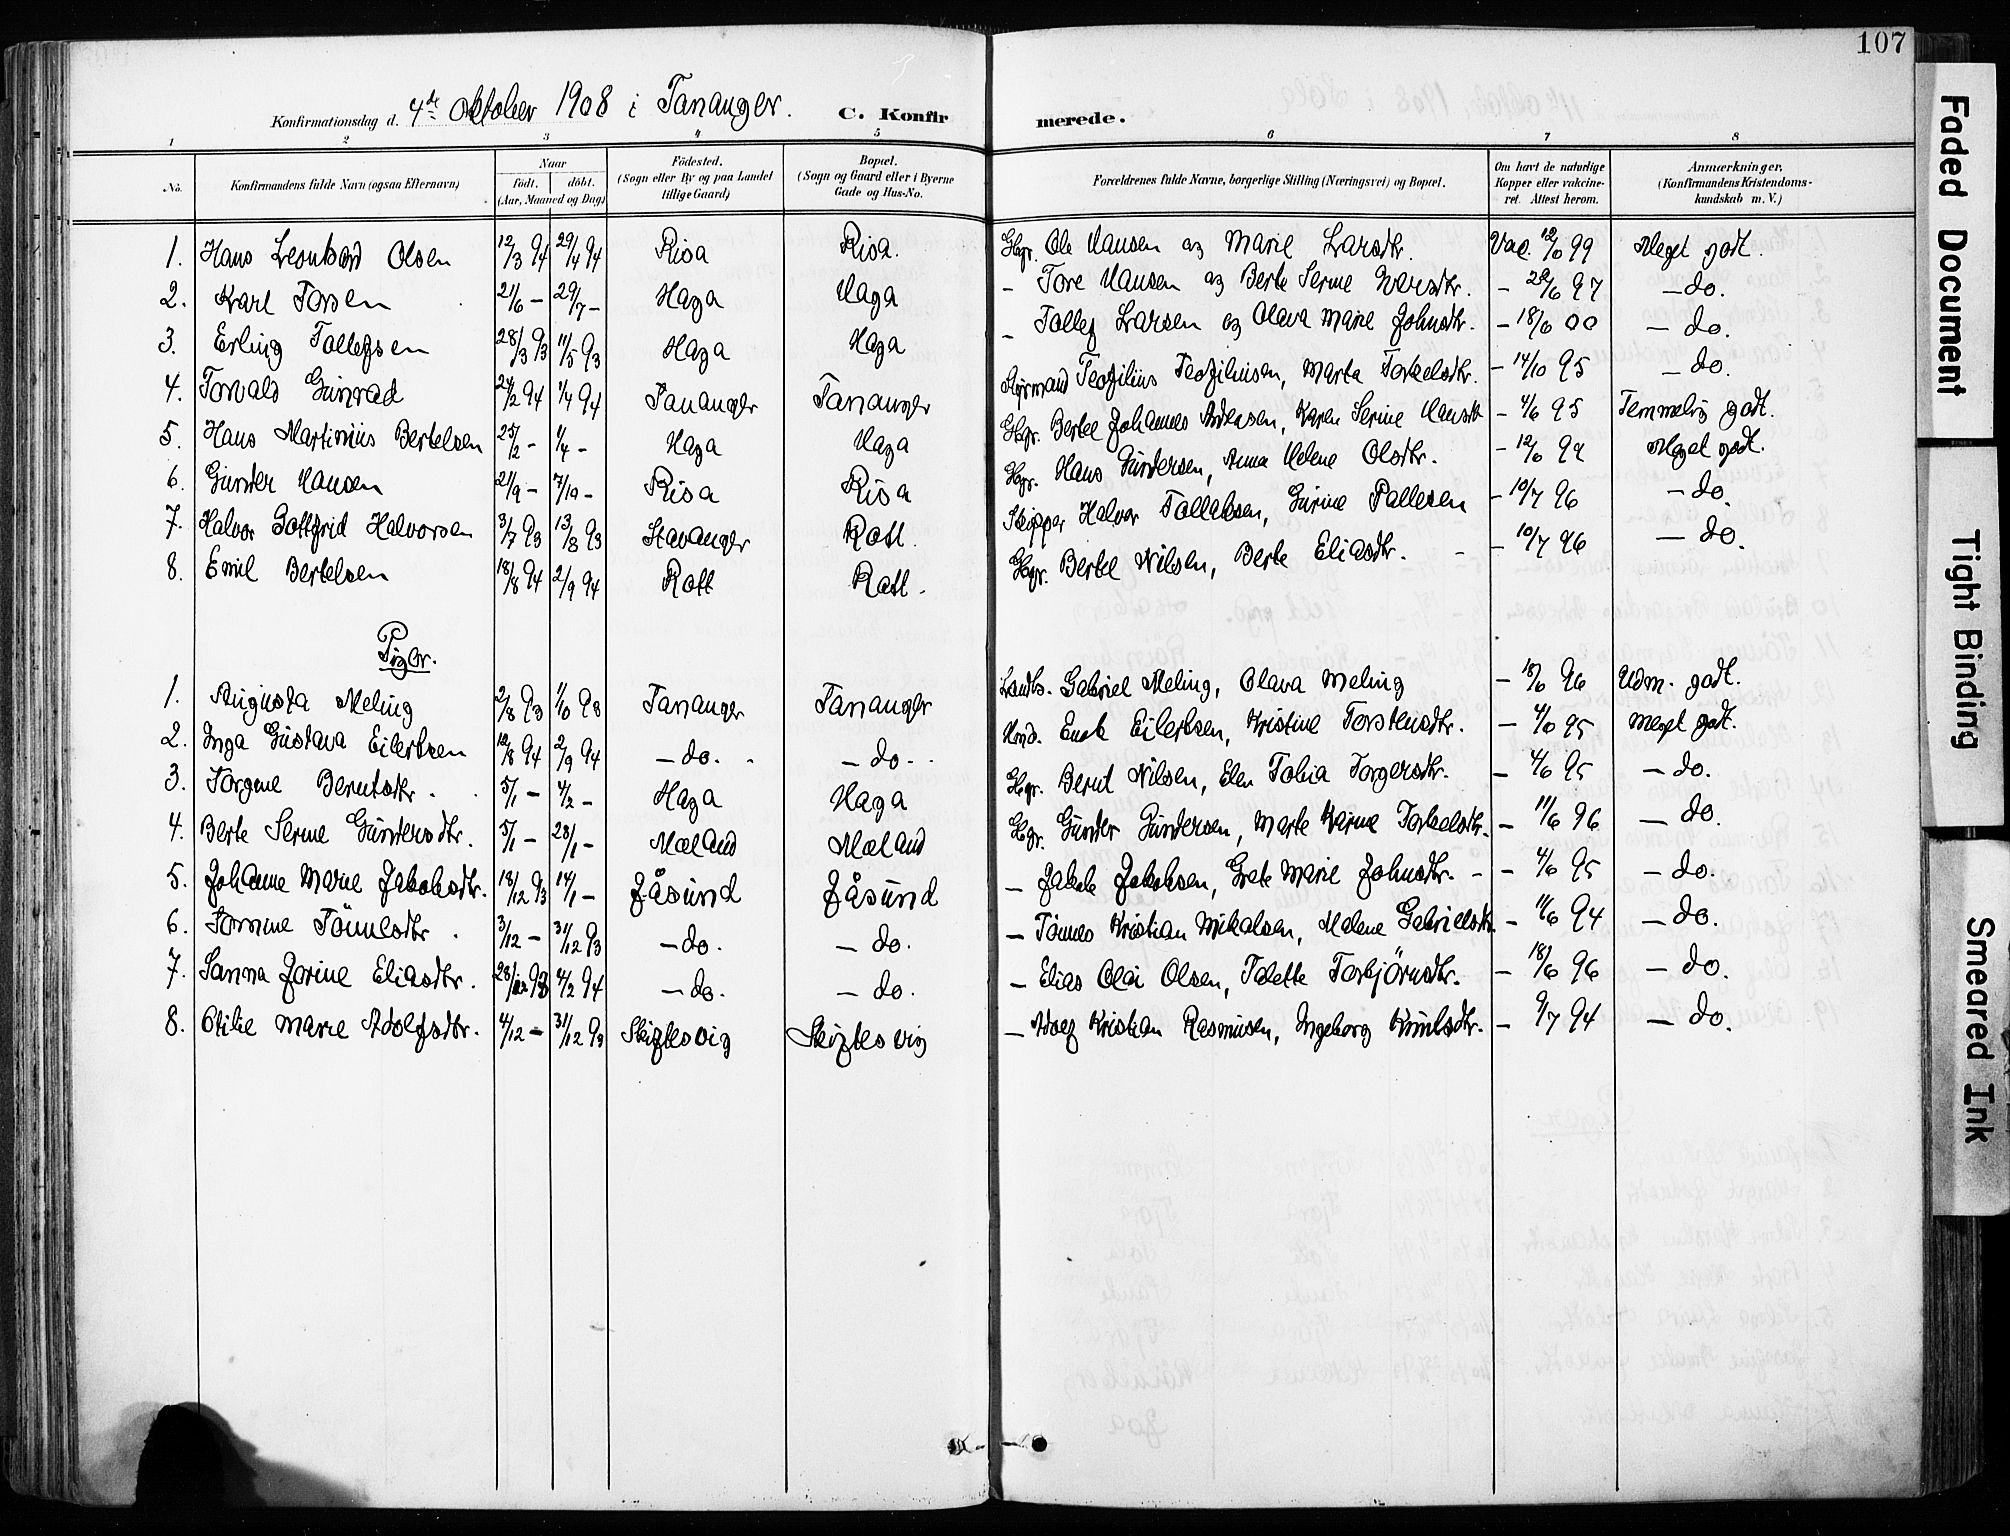 107
Konfirmationsdag d. 4de Oktober 1908 i Tananger. C. Konfirmerede.
1 2 3 4 5 6 7 8
No. Konfirmandens fulde Navn (ogsaa Efternavn) Naar født. døbt. (Aar, Maaned og Dag) Fødested. (Sogn eller By og paa Landet tillige Gaard) Bopæl. (Sogn og Gaard eller i Byerne Gade og Hus-No. Forældrenes fulde Navne, borgerlige Stilling (Næringsvei) og Bopæl. Om havt de naturlige Kopper eller vakcineret. Attest herom. Anmærkninger. (Konfirmandens Kristendomskundskab m. V.)
1. Hans Leonhard Olsen 12/3 94 29/4 94 Risa Risa. Gbgr. Ole Hansen og Marie Larsdtr. Vac. 12/6 99 Meget godt.
2. Karl Torsen 21/6 - 29/7 - Haga Haga - Tore Hansen og Berte Serine Ivarsdtr. - 22/6 97 - do.
3. Erling Tollefsen 28/3 93 11/5 93 Haga Haga - Tollef Larsen og Olava Marie Johnsdtr. - 18/6 00 - do.
4. Torvald Gunrad 24/2 94 1/4 94 Tananger Tananger Styrmand Teofilius Teofiliusen, Marta Torkelsdtr. - 14/10 95 - do.
5. Hans Martinius Bertelsen 25/2 - 1/4 - Haga Haga Gbgr. Bertel Johannes Andersen, Karen Serine Hansdtr - 4/6 95 Temmelig godt.
6. Gunder Hansen 21/9 - 7/10 - Risa Risa Gbgr. Hans Gundersen, Anna Helene Olsdtr. - 12/6 99 Meget godt.
7. Halvor Gottfrid Halvorsen 3/7 93 13/8 93 Stavanger Rott. Skipper Halvor Tollaksen, Gurine Pallesen - 10/7 96 - do.
8. Emil Bertelsen 18/8 94 2/9 94 Rott Rott. Gbgr. Bertel Nilsen, Berte Eliasdtr. - - 10/7 96 - do.
Piger.
1. Augusta Meling 2/8 93 1/10 98 Tananger Tananger Landh. Gabriel Meling, Olava Meling - 18/6 96 Udm. godt.
2. Inga Gustava Eilertsen 12/8 94 2/9 94 - do. - do. Hmd. Enok Eilertsen, Kristine Torstensdtr. - 4/6 95 meget godt.
3. Torgine Berntsdtr. 5/1 - 4/2 - Haga Haga Gbgr. Bernt Nilsen, Elen Tobia Torgersdtr. - 4/6 95 - do.
4. Berte Serine Gundersdtr. 5/1 - 28/1 - Mæland Mæland Gbgr. Gunder Gundersen, Marte Karine Torkelsdtr. - 11/6 96 - do.
5. Johanne Marie Jakobsdtr. 18/12 93 14/1 - Jåsund Jåsund - Jakob Jakobsen, Grete Marie Johnsdtr. - - 4/6 95 - do.
6. Tomine Tönnesdtr. 3/12 - 31/12 93 - do. - do. - Tönnes Kristian Mikalsen, Malene Gabrielsdtr. - 11/6 94 - do.
7. Sanna Jorine Eliasdtr. 28/12 93 4/2 94 - do. - do. - Elias Olai Olsen, Talette Torbjörnsdtr. - 18/6 96 - do.
8. Otilie Marie Adolfsdtr. 4/12 - 31/12 93 Skiftesvig Skiftesvig - Adolf Kristian Rasmusen, Ingeborg Knutsdtr. - 9/7 94 - do.
Faded Document
Tight Binding
Smeared Ink